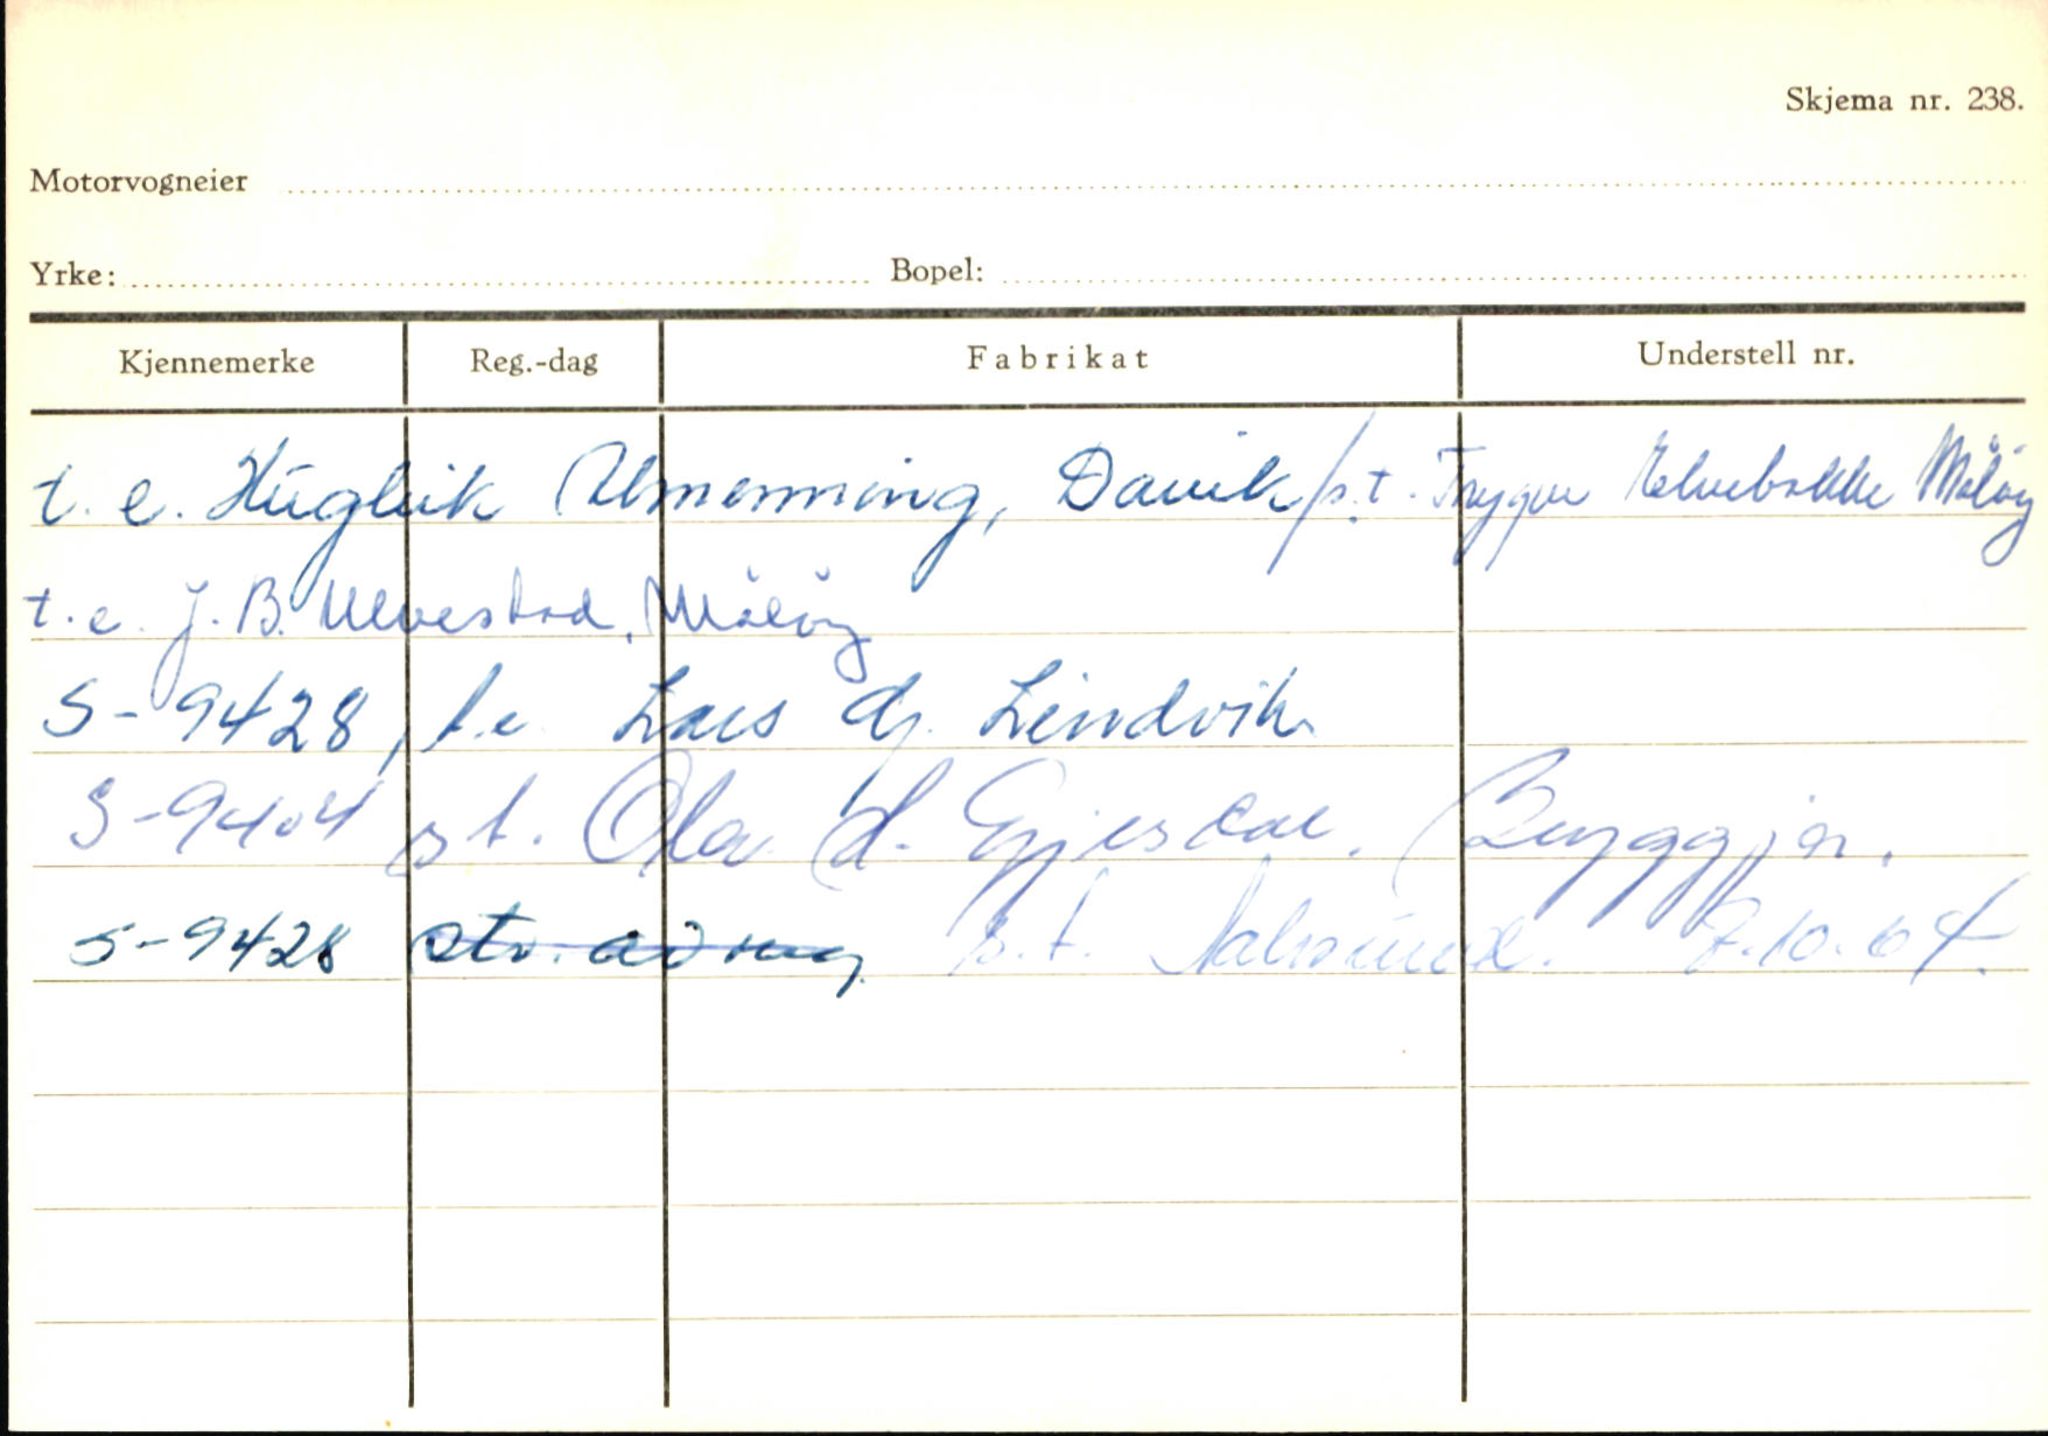 Skjema nr. 238.
Motorvogneier
Yrke: Bopel:
Kjennemerke Reg.-dag Fabrikat Understell nr.
t. e. Hugleik Almenning, Davik/s.t. Trygve Elvebakke Måløy
t.e. J. B. Ulvestad, Måløy
S-9428, t.e. Lars J. Lindvik
S-9404 s.t. Ola d. Gjesdal. Bryggja.
S-9428 str. avreg. s.t. Aalesund. 7.10.64.